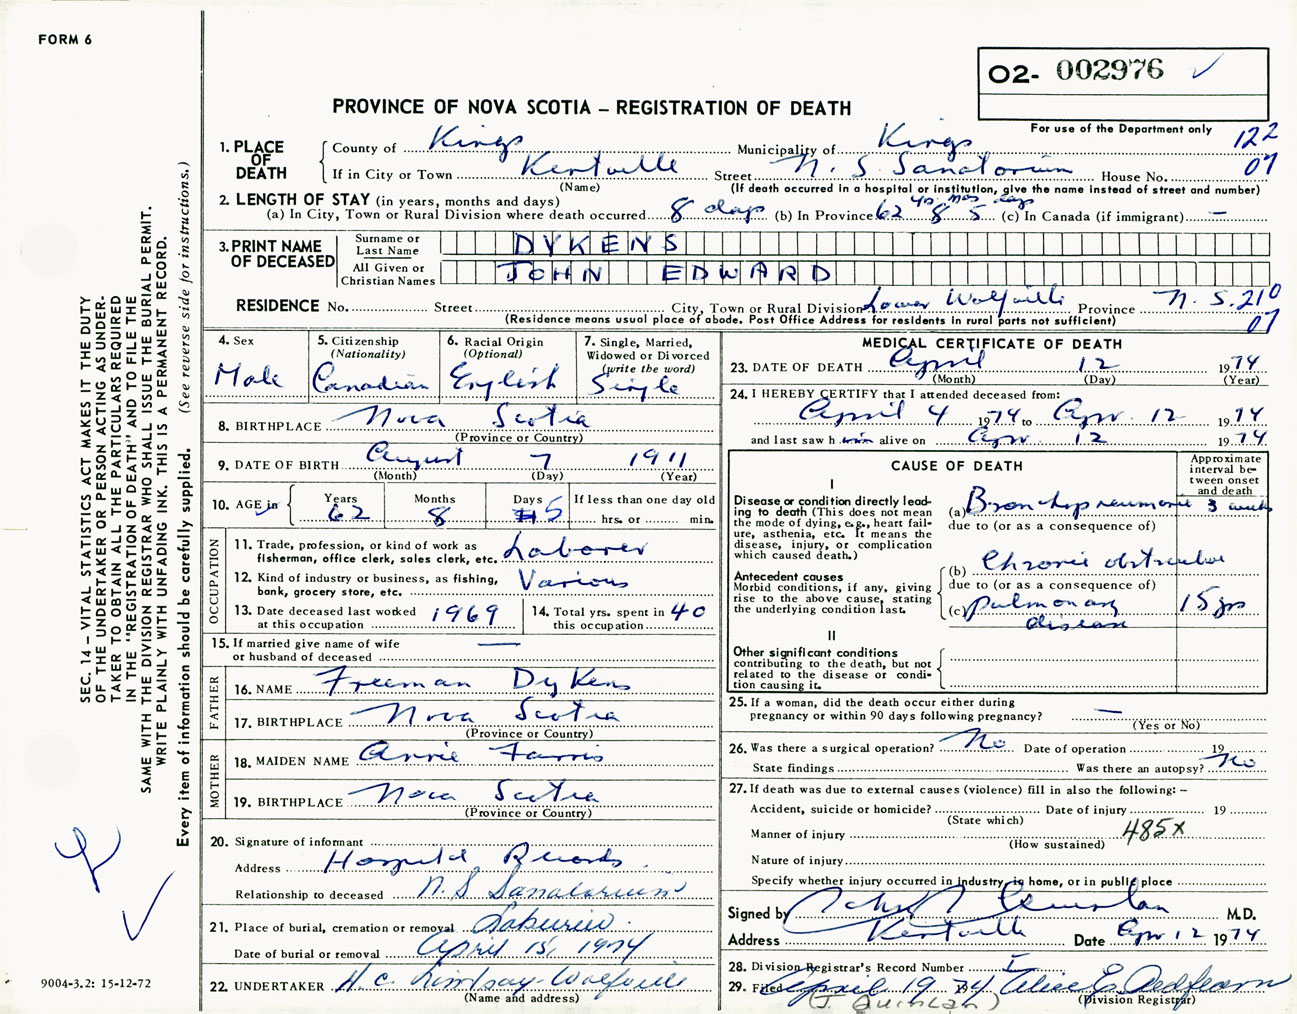 FORM 6
O2- 002976 ✓
PROVINCE OF NOVA SCOTIA – REGISTRATION OF DEATH
For use of the Department only
122
07
1. PLACE OF DEATH
County of Kings Municipality of Kings
If in City or Town Kentville Street N. S. Sanatorium House No.
(Name) (If death occurred in a hospital or institution, give the name instead of street and number)
2. LENGTH OF STAY (in years, months and days)
(a) In City, Town or Rural Division where death occurred 8 days (b) In Province 62 yrs 8 mos 5 days (c) In Canada (if immigrant) —
3. PRINT NAME OF DECEASED
Surname or Last Name DYKENS
All Given or Christian Names JOHN EDWARD
RESIDENCE No. Street City, Town or Rural Division Lower Wolfville Province N. S. 210
(Residence means usual place of abode. Post Office Address for residents in rural parts not sufficient)
07
4. Sex Male
5. Citizenship (Nationality) Canadian
6. Racial Origin (Optional) English
7. Single, Married, Widowed or Divorced (write the word) Single
8. BIRTHPLACE Nova Scotia
(Province or Country)
9. DATE OF BIRTH August 7 1911
(Month) (Day) (Year)
10. AGE in
Years 62 Months 8 Days 5
If less than one day old
hrs. or min.
OCCUPATION
11. Trade, profession, or kind of work as fisherman, office clerk, sales clerk, etc. Laborer
12. Kind of industry or business, as fishing, bank, grocery store, etc. Various
13. Date deceased last worked at this occupation 1969
14. Total yrs. spent in this occupation 40
15. If married give name of wife or husband of deceased —
FATHER
16. NAME Freeman Dykens
17. BIRTHPLACE Nova Scotia
(Province or Country)
MOTHER
18. MAIDEN NAME Annie Farris
19. BIRTHPLACE Nova Scotia
(Province or Country)
20. Signature of informant
Address Hospital Records
Relationship to deceased N. S Sanatorium
21. Place of burial, cremation or removal
Date of burial or removal April 15, 1974
22. UNDERTAKER H. C. Lindsay - Wolfville
(Name and address)
MEDICAL CERTIFICATE OF DEATH
23. DATE OF DEATH April 12 1974
(Month) (Day) (Year)
24. I HEREBY CERTIFY that I attended deceased from:
April 4 1974 to Apr. 12 1974
and last saw h im alive on Apr. 12 1974
CAUSE OF DEATH
Approximate interval between onset and death
I
Disease or condition directly leading to death (This does not mean the mode of dying, e.g., heart failure, asthenia, etc. It means the disease, injury, or complication which caused death.)
(a) Bronchopneumonia 3 weeks
due to (or as a consequence of)
Antecedent causes
Morbid conditions, if any, giving rise to the above cause, stating the underlying condition last.
(b) Chronic obstructive
due to (or as a consequence of)
(c) pulmonary disease 15 yrs
II
Other significant conditions
contributing to the death, but not related to the disease or condition causing it.
25. If a woman, did the death occur either during pregnancy or within 90 days following pregnancy? —
(Yes or No)
26. Was there a surgical operation? No Date of operation 19
State findings Was there an autopsy? No
27. If death was due to external causes (violence) fill in also the following: –
Accident, suicide or homicide? Date of injury 19
(State which)
Manner of injury 485x
(How sustained)
Nature of injury
Specify whether injury occurred in industry, in home, or in public place
Signed by M.D.
Address Kentville Date Apr 12 1974
28. Division Registrar's Record Number
29. Filed April 19 1974 Alice E.
(J. QUINLAN)
(Division Registrar)
SEC. 14 – VITAL STATISTICS ACT MAKES IT THE DUTY
OF THE UNDERTAKER OR PERSON ACTING AS UNDERTAKER TO OBTAIN ALL THE PARTICULARS REQUIRED
IN THE "REGISTRATION OF DEATH" AND TO FILE THE
SAME WITH THE DIVISION REGISTRAR WHO SHALL ISSUE THE BURIAL PERMIT.
WRITE PLAINLY WITH UNFADING INK. THIS IS A PERMANENT RECORD.
Every item of information should be carefully supplied. (See reverse side for instructions.)
✓
9004-3.2: 15-12-72